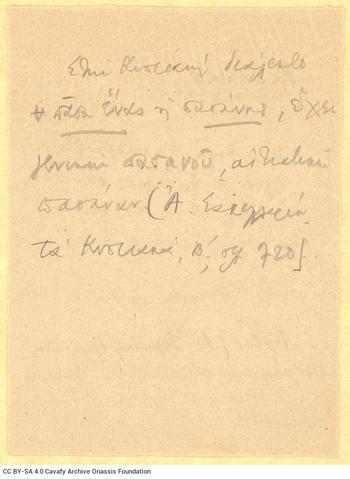 Στην Κυπριακή διάλεκτο
η πᾶσα ἕνας ἢ πασάνας, ἔχει
γενικὴν πασανοῦ, αἰτιατικὴν
πασάναν (Ἀ. Σακελλαρίου
τὰ Κυπριακά, Β΄, σελ. 720].
CC BY-SA 4.0 Cavafy Archive Onassis Foundation